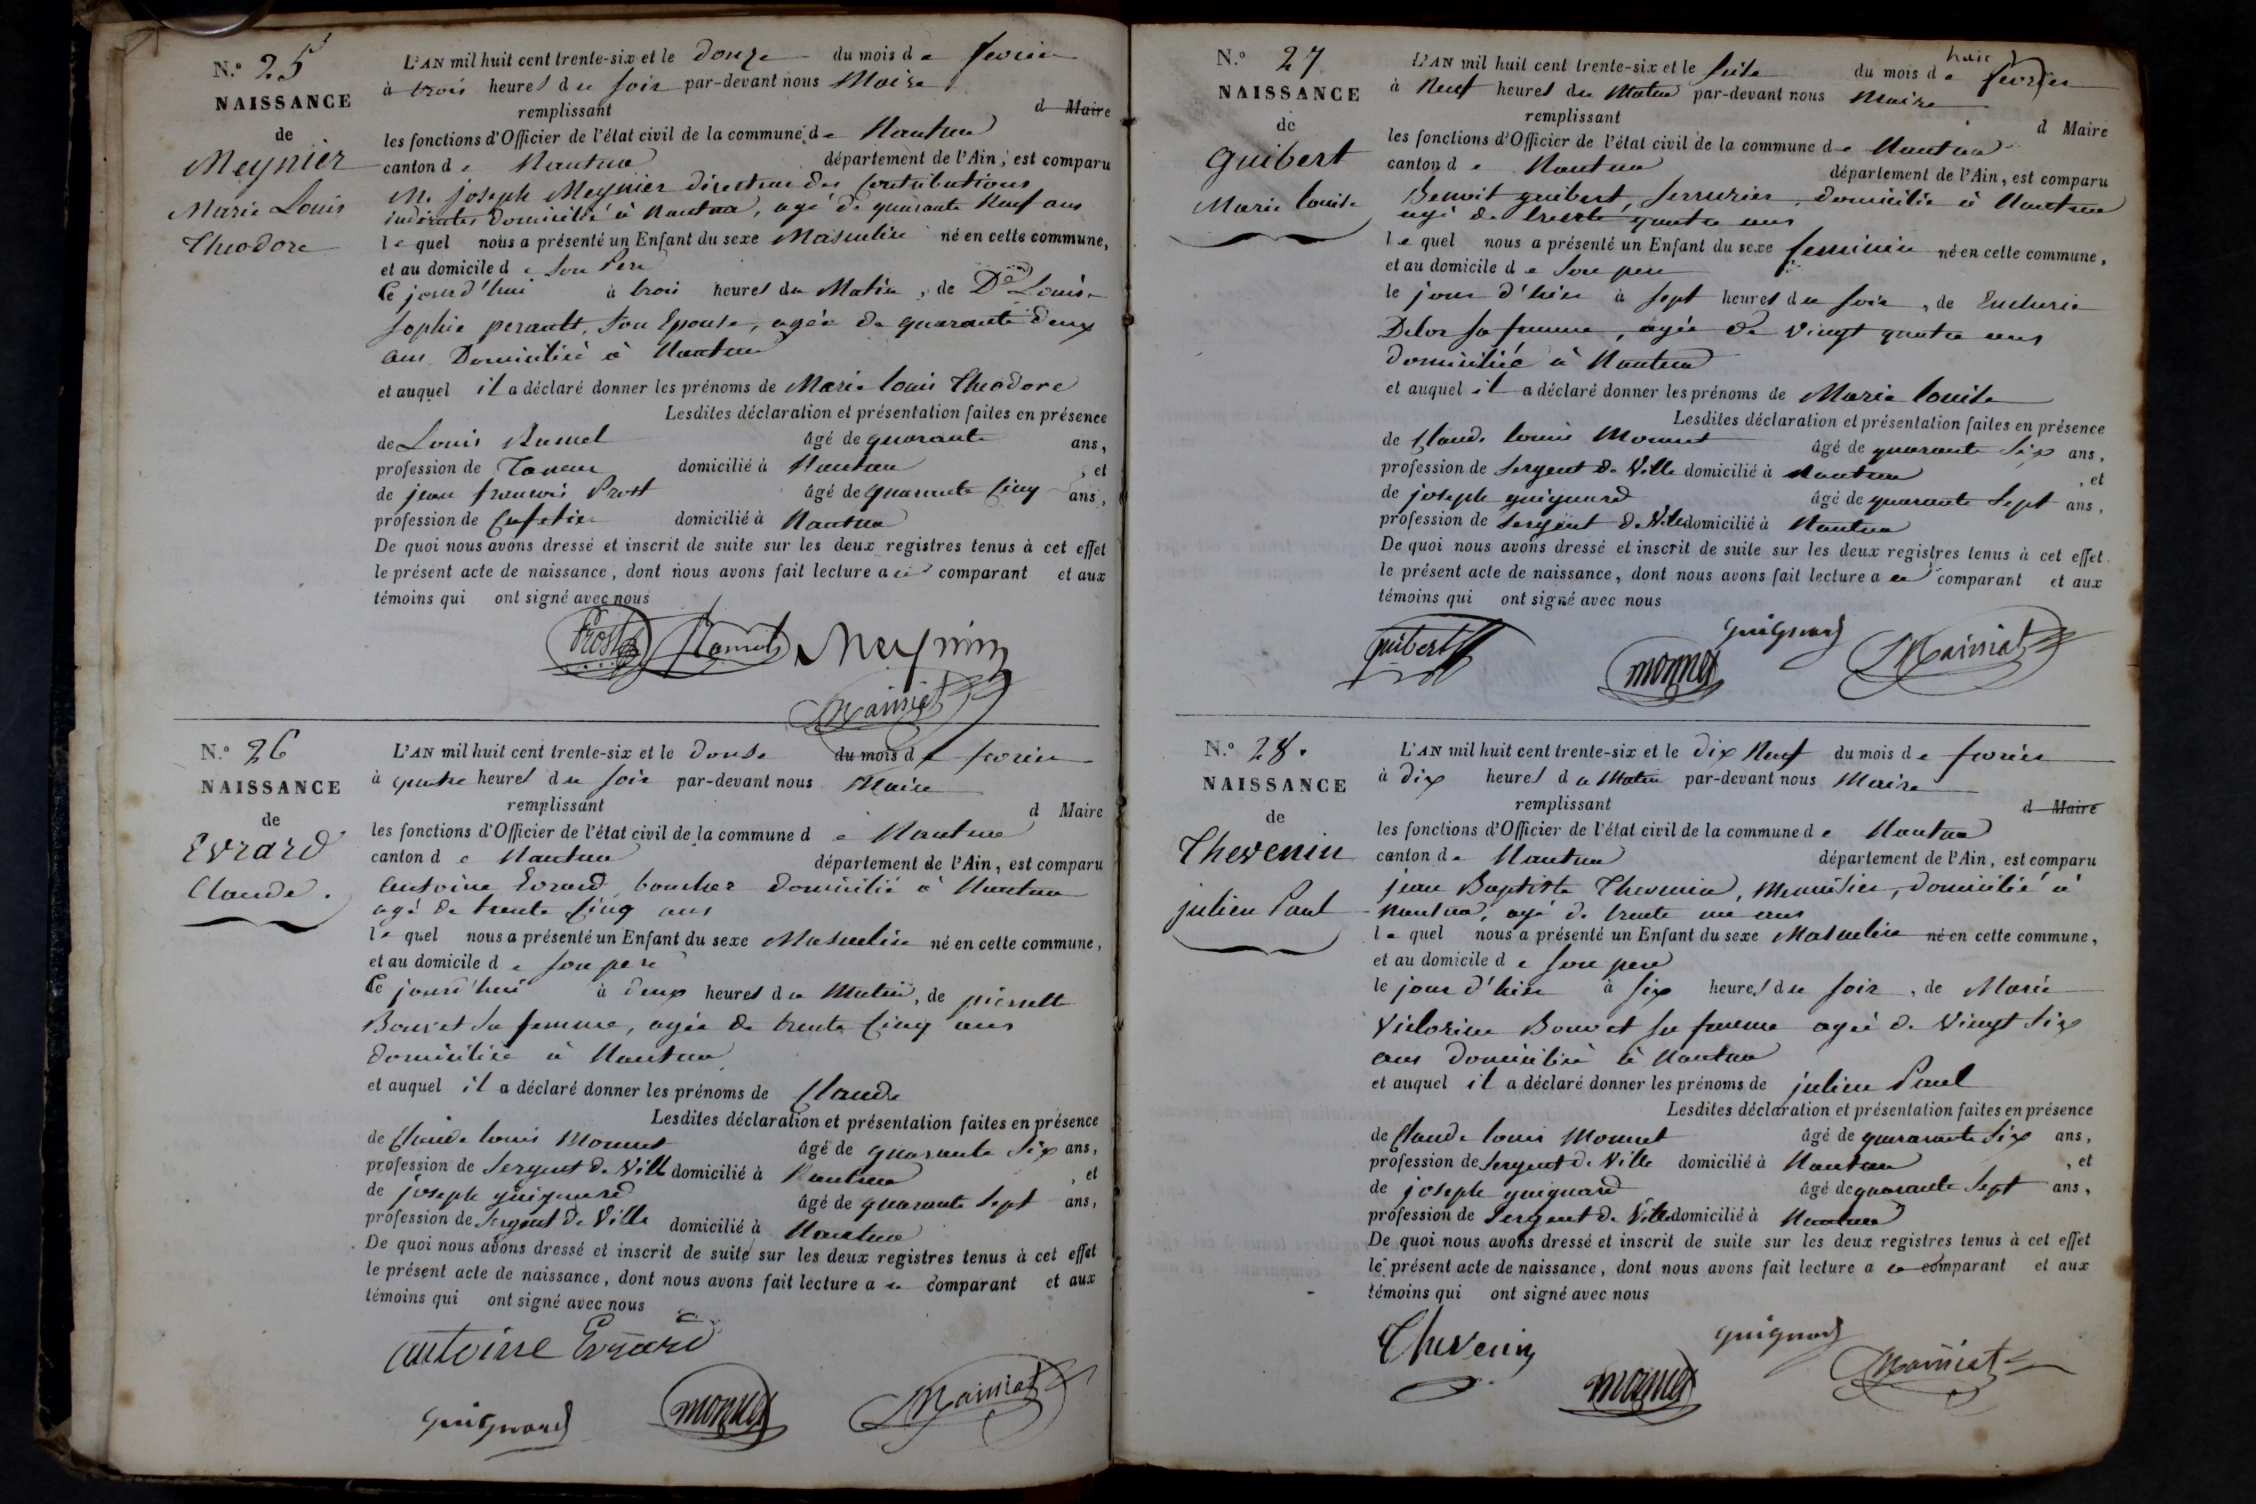 N.º 25
NAISSANCE
de
Meynier
Marie Louis
Theodore
L'AN mil huit cent trente-six et le douze du mois de fevrier
à trois heures du soir par-devant nous Maire
remplissant d Maire
les fonctions d'Officier de l'état civil de la commune de Nantua
canton de Nantua département de l'Ain, est comparu
M. joseph Meynier directeur des Contributions
indirectes domicilié à Nantua, agé de quarante Neuf ans
lequel nous a présenté un Enfant du sexe Masculin né en cette commune,
et au domicile de son Pere
Ce jourd'hui à trois heures du Matin, de De Louise
Sophie perault, son Epouse, agée de quarante deux
ans Domiciliée à Nantua
et auquel il a déclaré donner les prénoms de Marie louis Theodore
Lesdites déclaration et présentation faites en présence
de Louis âgé de quarante ans,
profession de domicilié à Nantua, et
de jean françois Prost âgé de quarante Cinq ans,
profession de Cafetier domicilié à Nantua
De quoi nous avons dressé et inscrit de suite sur les deux registres tenus à cet effet
le présent acte de naissance, dont nous avons fait lecture a ce comparant et aux
témoins qui ont signé avec nous
Prost Meynier
Mainiat
N.º 26
NAISSANCE
de
Evrard
Claude.
L'AN mil huit cent trente-six et le douse du mois de fevrier
à quatre heures du soir par-devant nous Maire
remplissant d Maire
les fonctions d'Officier de l'état civil de la commune de Nantua
canton de Nantua département de l'Ain, est comparu
antoine Evrard boucher domicilié à Nantua
agé de trente Cinq ans
lequel nous a présenté un Enfant du sexe Masculin né en cette commune,
et au domicile de son pere
Ce jourd'hui à deux heures du Matin, de pierrette
Bouvet sa femme, agée de trente Cinq ans
domiciliée à Nantua
et auquel il a déclaré donner les prénoms de Claude
Lesdites déclaration et présentation faites en présence
de Claude louis Monnet âgé de quarante Six ans,
profession de Sergent de Ville domicilié à Nantua, et
de joseph guignard âgé de quarante Sept ans,
profession de Sergent de Ville domicilié à Nantua
De quoi nous avons dressé et inscrit de suite sur les deux registres tenus à cet effet
le présent acte de naissance, dont nous avons fait lecture a ce comparant et aux
témoins qui ont signé avec nous
antoine Evrard
guignard monnet Mainiat
N.º 27
NAISSANCE
de
guibert
Marie louise
L'AN mil huit cent trente-six et le seize du mois de fevrier
à Neuf heures du Matin par-devant nous Maire
remplissant d Maire
les fonctions d'Officier de l'état civil de la commune de Nantua
canton de Nantua département de l'Ain, est comparu
Benoit guibert, serrurier, domicilié à Nantua
agé de trente quatre ans
lequel nous a présenté un Enfant du sexe feminin né en cette commune,
et au domicile de son pere
le jour d'hier à sept heures du soir, de
Delor sa femme, agée de vingt quatre ans
domiciliée à Nantua
et auquel il a déclaré donner les prénoms de Marie louise
Lesdites déclaration et présentation faites en présence
de Claude louis Monnet âgé de quarante Six ans,
profession de Sergent de Ville domicilié à Nantua, et
de joseph guignard âgé de quarante Sept ans,
profession de Sergent de Ville domicilié à Nantua
De quoi nous avons dressé et inscrit de suite sur les deux registres tenus à cet effet
le présent acte de naissance, dont nous avons fait lecture a ce comparant et aux
témoins qui ont signé avec nous
guibert monnet guignard Mainiat
N.º 28.
NAISSANCE
de
Thevenin
julien Paul
L'AN mil huit cent trente-six et le dix Neuf du mois de fevrier
à dix heures du Matin par-devant nous Maire
remplissant d Maire
les fonctions d'Officier de l'état civil de la commune de Nantua
canton de Nantua département de l'Ain, est comparu
jean Baptiste Thevenin, Menuisier, domicilié à
Nantua, agé de trente un ans
lequel nous a présenté un Enfant du sexe Masculin né en cette commune,
et au domicile de son pere
le jour d'hier à six heures du soir, de Marie
Victorine Bouvet sa femme agée de Vingt Six
ans domiciliée à Nantua
et auquel il a déclaré donner les prénoms de julien Paul
Lesdites déclaration et présentation faites en présence
de Claude louis Monnet âgé de quararante Six ans,
profession de Sergent de Ville domicilié à Nantua, et
de joseph guignard âgé de quarante Sept ans,
profession de Sergent de Ville domicilié à Nantua
De quoi nous avons dressé et inscrit de suite sur les deux registres tenus à cet effet
le présent acte de naissance, dont nous avons fait lecture a ce comparant et aux
témoins qui ont signé avec nous
Thevenin monnet guignard Mainiat